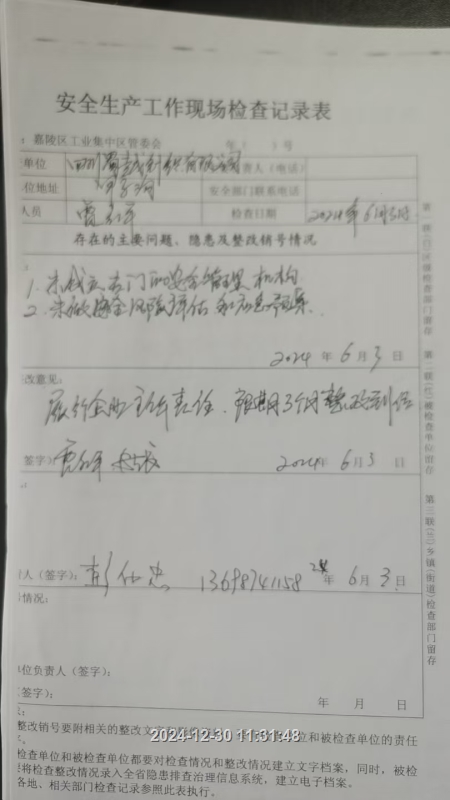 安全生产工作现场检查记录表
嘉陵区工业集中区管委会 年( )号
单位 四川 有限公司 责人(电话)
位地址 安全部门联系电话
人员 检查日期 2024年6月3日
存在的主要问题、隐患及整改销号情况
1. 未成立专门的安全管理机构
2. 未做安全风险评估和应急预案.
2024年6月3日
改意见:
履行企业主体责任、限期3个月整改到位
签字): 2024年6月3日
人(签字): 彭仕忠 13698741158 24年6月3日
情况:
单位负责人(签字):
签字):
年 月 日
整改销号要附相关的整改文 位和被检查单位的责任
检查单位和被检查单位都要对检查情况和整改情况建立文字档案,同时,被检
将检查整改情况录入全省隐患排查治理信息系统,建立电子档案。
各地、相关部门检查记录参照此表执行。
第一联(白)区级检查部门留存
第二联(红)被检查单位留存
第三联(三)乡镇(街道)检查部门留存
2024-12-30 11:31:48